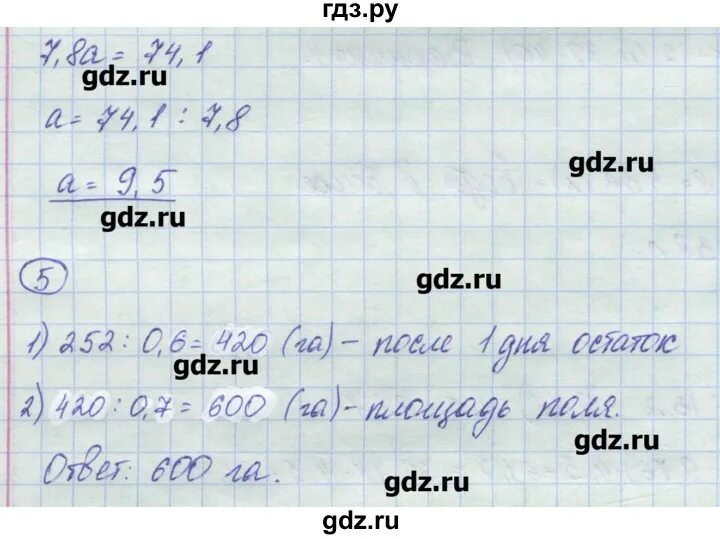 гдз.ру
7,8a = 74,1
gdz.ru
a = 74,1 : 7,8
gdz.ru
a = 9,5
gdz.ru
5
gdz.ru
1) 252 : 0,6 = 420 (га) – после 1 дня остаток
gdz.ru
2) 420 : 0,7 = 600 (га) – площадь поля.
gdz.ru
Ответ: 600 га.
gdz.ru
gdz.ru